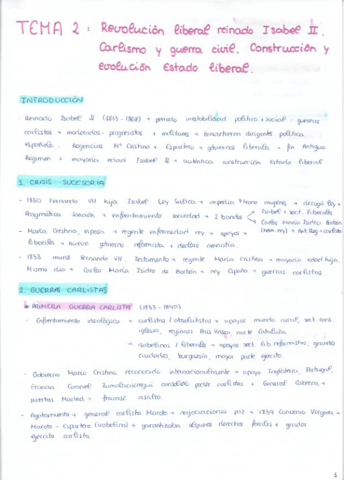 TEMA 2: Revolución liberal reinado Isabel II.
Carlismo y guerra civil. Construcción y
evolución Estado liberal.
INTRODUCCIÓN
- Reinado Isabel II (1833-1868) → periodo inestabilidad política + social → guerras
carlistas → moderados - progresistas + militares → dirigentes política
española. Regencias Mª Cristina + Espartero → gobiernos liberales → fin Antiguo
Régimen + mayoría edad Isabel II → auténtica construcción estado liberal
1. CRISIS SUCESORIA
- 1830 Fernando VII hija Isabel Ley Sálica → impedía trono mujeres →
Pragmática Sanción → enfrentamiento sociedad → 2 bandos
Isabel + sect. liberales
Carlos María Isidro
- María Cristina, esposa → regente enfermedad rey → apoyo +
liberales → nuevo gobierno reformista +
- 1833 muere Fernando VII. Testamento → regente María Cristina → mayoría edad hija.
Mismo día → Carlos María Isidro de Borbón → rey España → guerras carlistas
2. GUERRAS CARLISTAS
PRIMERA GUERRA CARLISTA (1833-1840)
- Enfrentamiento ideológico → carlistas / absolutistas → apoyo mundo rural, sect.
iglesia, regiones País Vasco, parte Cataluña
→ isabelinos / liberales → apoyos sect. lib reformistas, grandes
ciudades, burguesía, mayor parte ejército.
- Gobierno María Cristina reconocido internacionalmente → apoyo Inglaterra, Portugal,
Francia Coronel Zumalacárregui consolidó poder carlistas + General Cabrera →
puertas Madrid → asalto.
- Agotamiento → general carlista Maroto → negociaciones paz → 1839 Convenio Vergara →
Maroto - Espartero (isabelino) → garantizaba algunos derechos forales + grados
ejército carlista.
1